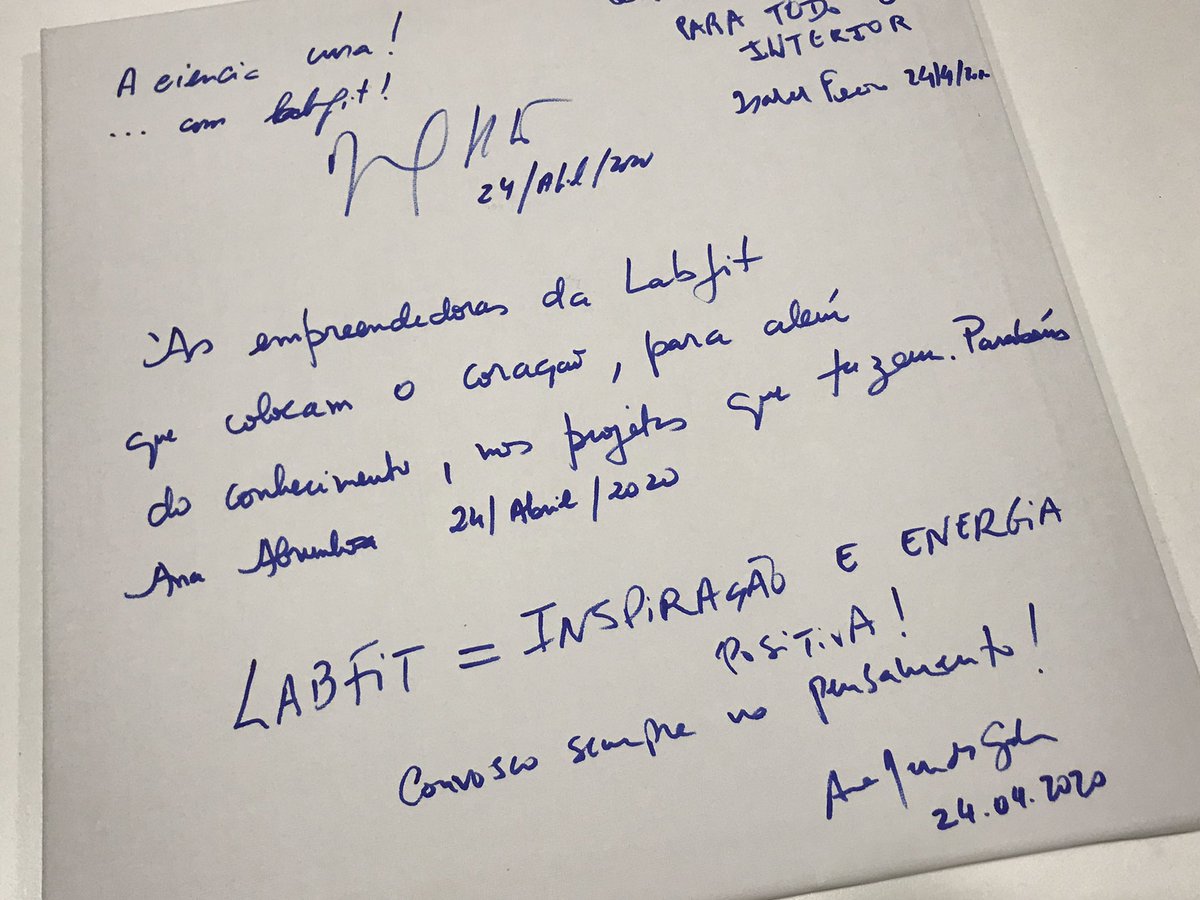 A ciencia cura!
... com labfit!
24/Abril/2020
PARA TODO O
INTERIOR
Isabel 24/4/2020
Às empreendedoras da Labfit
que colocam o coração, para além
do conhecimento, nos projetos que fazem. Parabéns
Ana Abrunhosa 24/Abril/2020
LABFIT = INSPIRAÇÃO E ENERGIA
POSITIVA!
Convosco sempre no pensamento!
Ana
24.04.2020